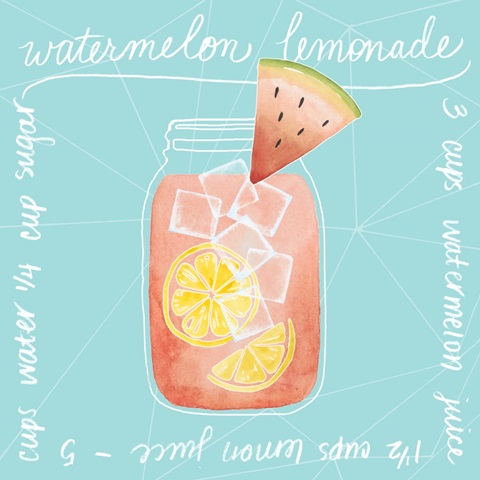 watermelon lemonade
3 cups watermelon juice
1 1/2 cups lemon juice - 5
cups water 1/4 cup sugar